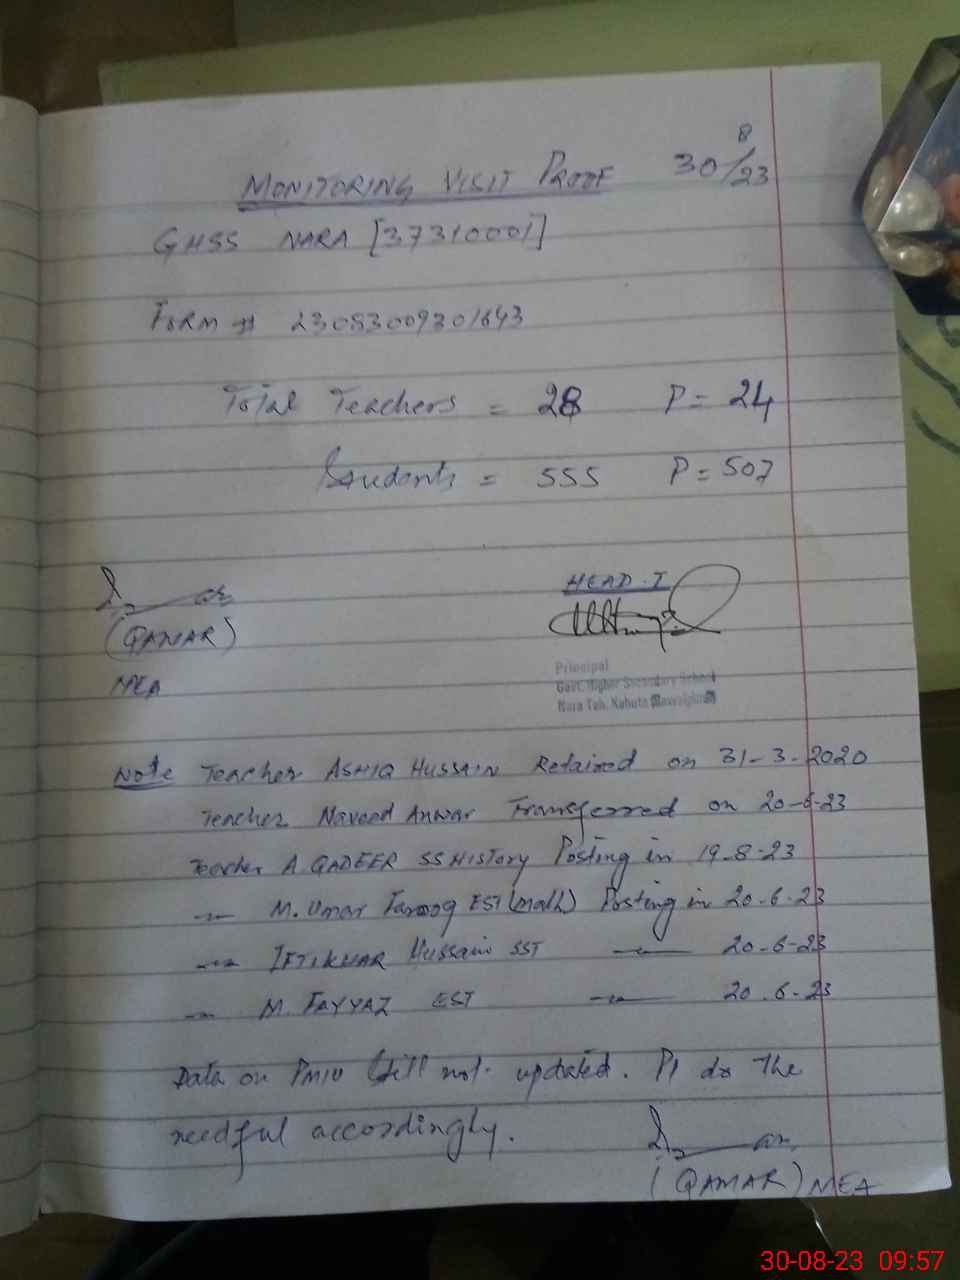 MONITORING VISIT PROOF 30/8/23
GHSS NARA [37310001]
FORM # 23083009301643
Total Teachers = 28 P = 24
Students = 555 P = 507
HEAD.I
(QAMAR)
MEA
Principal
Govt. Higher Secondary School
Nara Teh. Kahuta Rawalpindi
Note Teacher ASHIQ HUSSAIN Retaired on 31-3-2020
Teacher Naveed Anwar Transferred on 20-6-23
Teacher A. QADEER SS HISTORY Posting in 19-8-23
M. Umar Farooq EST (math) Posting in 20-6-23
IFTIKHAR Hussain SST 20-6-23
M. FAYYAZ EST 20.6-23
Data on PMIU Still not updated. Pl do the
needful accordingly.
(QAMAR) MEA
30-08-23 09:57